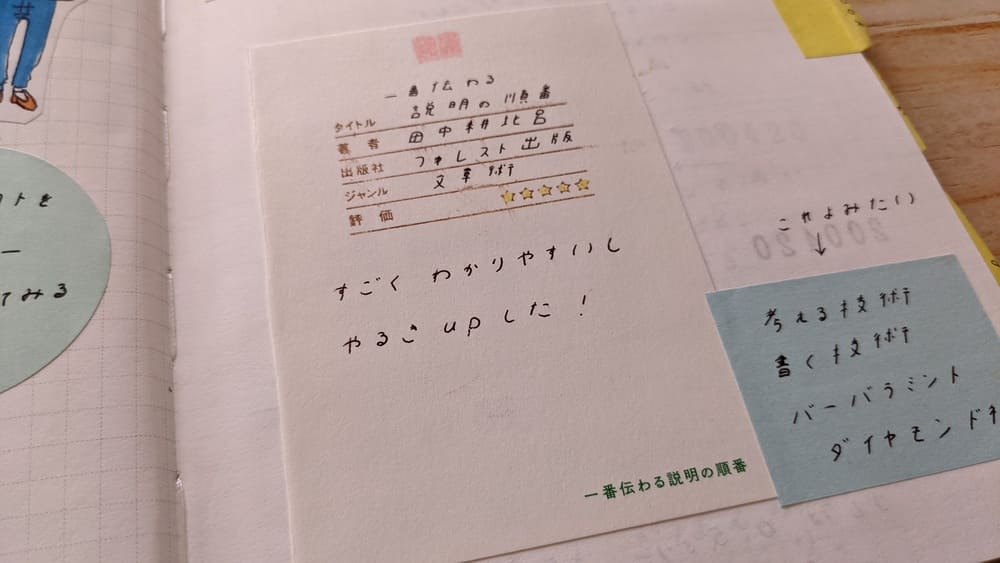 トを
ー
てみる
一番伝わる
タイトル 説明の順番
著者 田中耕比呂
出版社 フォレスト出版
ジャンル 文章術
評価 ☆☆☆☆☆
すごくわかりやすいし
やるきupした!
一番伝わる説明の順番
これよみたい
↓
考える技術
書く技術
バーバラミント
ダイヤモンド
200420